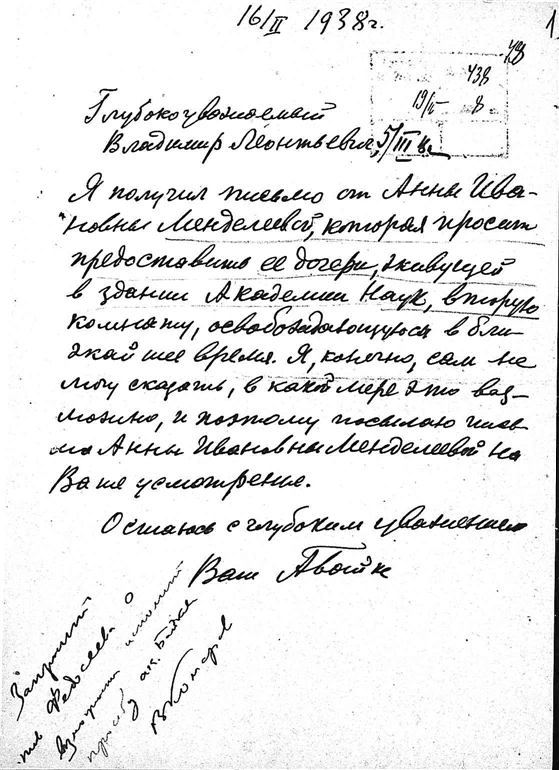 16/II 1938г.
1
48
438
19/II 8
Глубокоуважаемый
Владимир Леонтьевич, 5/III
Я получил письмо от Анны Ива-
новны Менделеевой, которая просит
предоставить ее дочери, живущей
в здании Академии Наук, вторую
комнату, освобождающуюся в бли-
жайшее время. Я, конечно, сам не
могу сказать, в какой мере это воз-
можно, и поэтому посылаю пись-
мо Анны Ивановны Менделеевой на
Ваше усмотрение.
Остаюсь с глубоким уважением
Ваш
Федосеева о
исполнить
просьбу ак.
ВКомаров